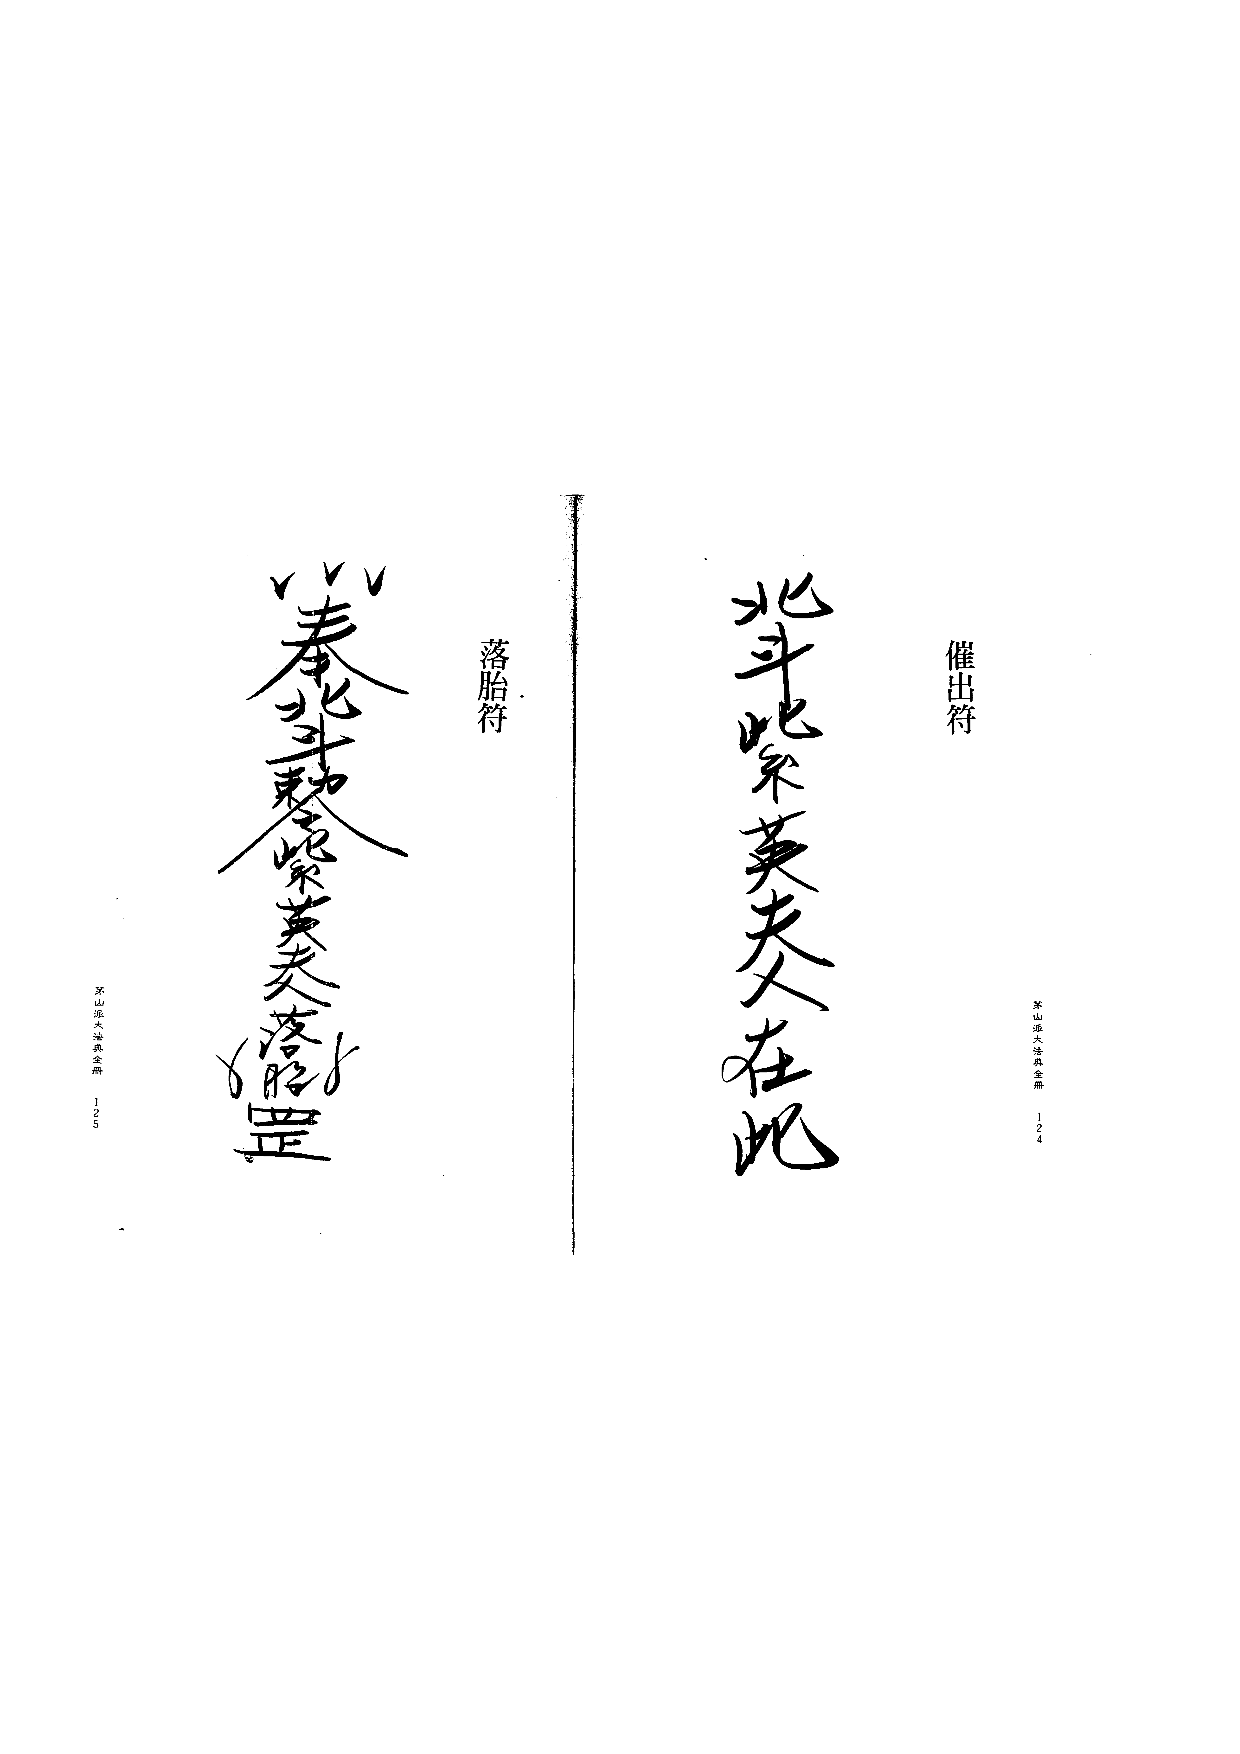 催出符
北斗紫英夫人在此
茅山派大法典全冊 124
落胎符
奉北斗敕令紫英夫人落胎罡
茅山派大法典全冊 125